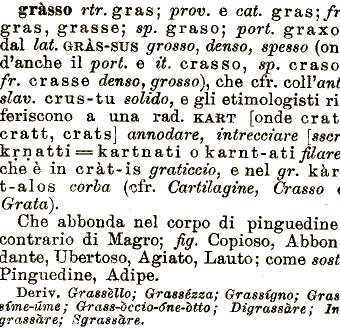 gràsso rtr. gras; prov. e cat. gras; fr
gras, grasse; sp. graso; port. graxo
dal lat. GRÀS-SUS grosso, denso, spesso (on
d'anche il port. e it. crasso, sp. craso
fr. crasse denso, grosso), che cfr. coll'ant
slav. crus-tu solido, e gli etimologisti ri
feriscono a una rad. KART [onde crat
cratt, crats] annodare, intrecciare [sscr
kṛṇatti = kartnati o karnt-ati filare
che è in cràt-is graticcio, e nel gr. kàr
t-alos corba (cfr. Cartilagine, Crasso e
Grata).
Che abbonda nel corpo di pinguedine
contrario di Magro; fig. Copioso, Abbon
dante, Ubertoso, Agiato, Lauto; come sost
Pinguedine, Adipe.
Deriv. Grassèllo; Grassézza; Grassígno; Gras
síme-úme; Grass-òccio-óne-òtto; Digrassàre; In
grassàre; Sgrassàre.